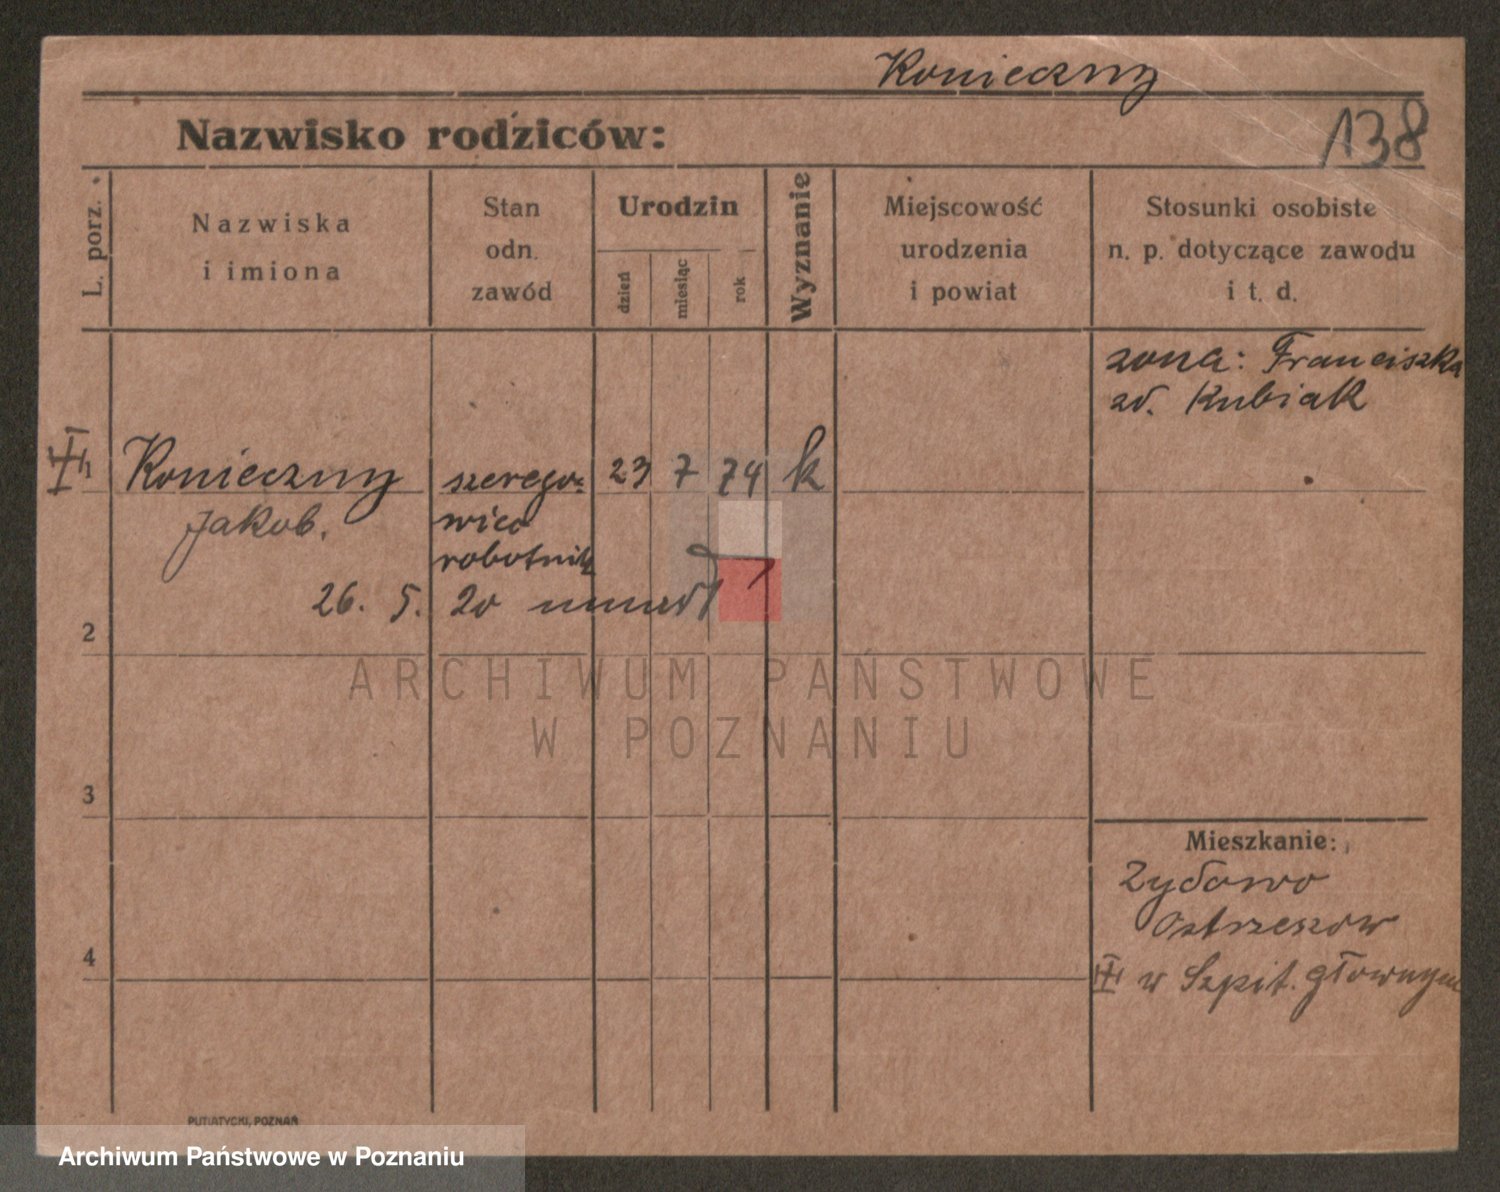 Konieczny
138
Nazwisko rodziców:
L. porz.
Nazwiska
i imiona
Stan
odn.
zawód
Urodzin
dzień
miesiąc
rok
Wyznanie
Miejscowość
urodzenia
i powiat
Stosunki osobiste
n. p. dotyczące zawodu
i t. d.
żona: Franciszka
zd. Kubiak
1
Konieczny
Jakob.
szerego-
wiec
robotnik
23 7 74 k
26. 5. 20 umarł
2
3
4
Mieszkanie:
Zydowo
Ostrzeszow
III w Szpit. głownym
ARCHIWUM PAŃSTWOWE
W POZNANIU
PUTIATYCKI, POZNAŃ
Archiwum Państwowe w Poznaniu